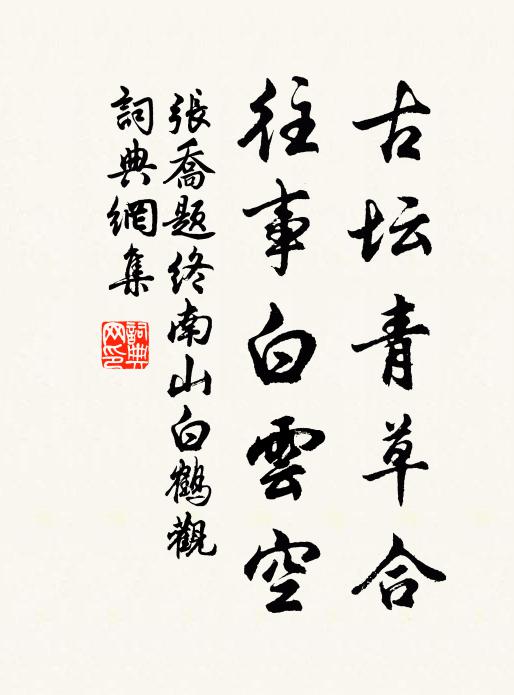 古坛青草合
往事白雲空
張喬题终南山白鶴觀
詞典網集
詞典网印